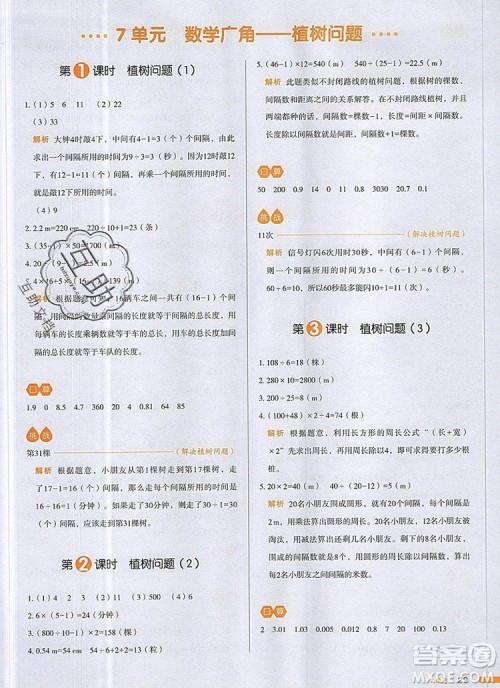 7 单元 数学广角——植树问题
第 1 课时 植树问题（1）
1.（1）5 6 11 （2）22
（3）33
解析 大钟4时敲4下，中间有4－1=3（个）间隔，由此
求出一个间隔所用的时间为9÷3=3（秒）。因为12时敲12
下，所以中间有12－1=11（个）间隔，
敲12下所用的时间。
（4）9
2. 2.2 m=220 cm 220÷10+1=23（条）
3.（35－1）
4. 20
解析 根据题意，16辆车中有（16－1）个间
隔，用间隔的数量乘间隔的长度等于间隔的总长度，用
每辆车的长度乘辆数等于车的总长度，间隔的总长度加
车的总长度就等于车队的总长度。
口算
1.9 0 8 4.5 0.027 360 4 0.835 7.4
挑战
第31棵 （解决植树问题）
解析 根据题意，小朋友从第1棵树走到第17棵树，走
了17－1=16（个）间隔，用了8分钟，则走一个间隔用
8÷16=0.5（分钟），15分钟走15÷0.5=30（个）间
隔，所以应该走到第31棵树。
第 2 课时 植树问题（2）
1.（1）7 （2）4 （3）2 （4）11 （5）3
2. 6×（5－1）=24（分钟）
3.（80－1）×2=158（分钟）
4. 0.54 m=54 cm
5.（46－1）×12=540（m） 540÷（25－1）=22.5（m）
解析 此题类似不封闭路线的植树问题，根据树的棵数、
间隔数和间距之间的关系解答。在不封闭路线上植树，并
且两端都植时，（棵数－1）×间距=长度，长度÷间隔数=间距，
长度除以间距=间隔数，间隔数+1=棵数。
口算
50 200 0.9 14 0.01 11 30.83 0.7 0.1
挑战
11次 （解决植树问题）
解析 信号灯闪6次用时30秒，中间有（6－1）个间
隔，则一个间隔为30÷（6－1）=6（秒），1分钟有
60÷6=10（个）间隔，所以1分钟闪10+1=11（次）。
第 3 课时 植树问题（3）
1. 108÷6=18（株）
2. 280×10=2800（m）
3. 200÷25=8（m）
4.（100+48）×2÷4=74（根）
解析 根据题意，利用长方形的周长公式“（长+宽）
×2”求出长方形的周长，再用周长除以间距就等于木桩
的根数。
5. 20×2=40（m） 40÷（20－12）=5（m）
解析 20名小朋友围成圆形，就有20个间隔，每个间隔
2米，用乘法算出圆形的周长。20名小朋友中有12名被
淘汰，还剩20－12=8（名）小朋友，8名小朋友围成圆
形有8个间隔，用圆形的周长除以间隔数就等于这时每
2名小朋友之间间隔的米数。
口算
2 3.01 27 0.1 0.2 63 1 8.8 6
互助
互助文档
答案圈
MXQE.COM